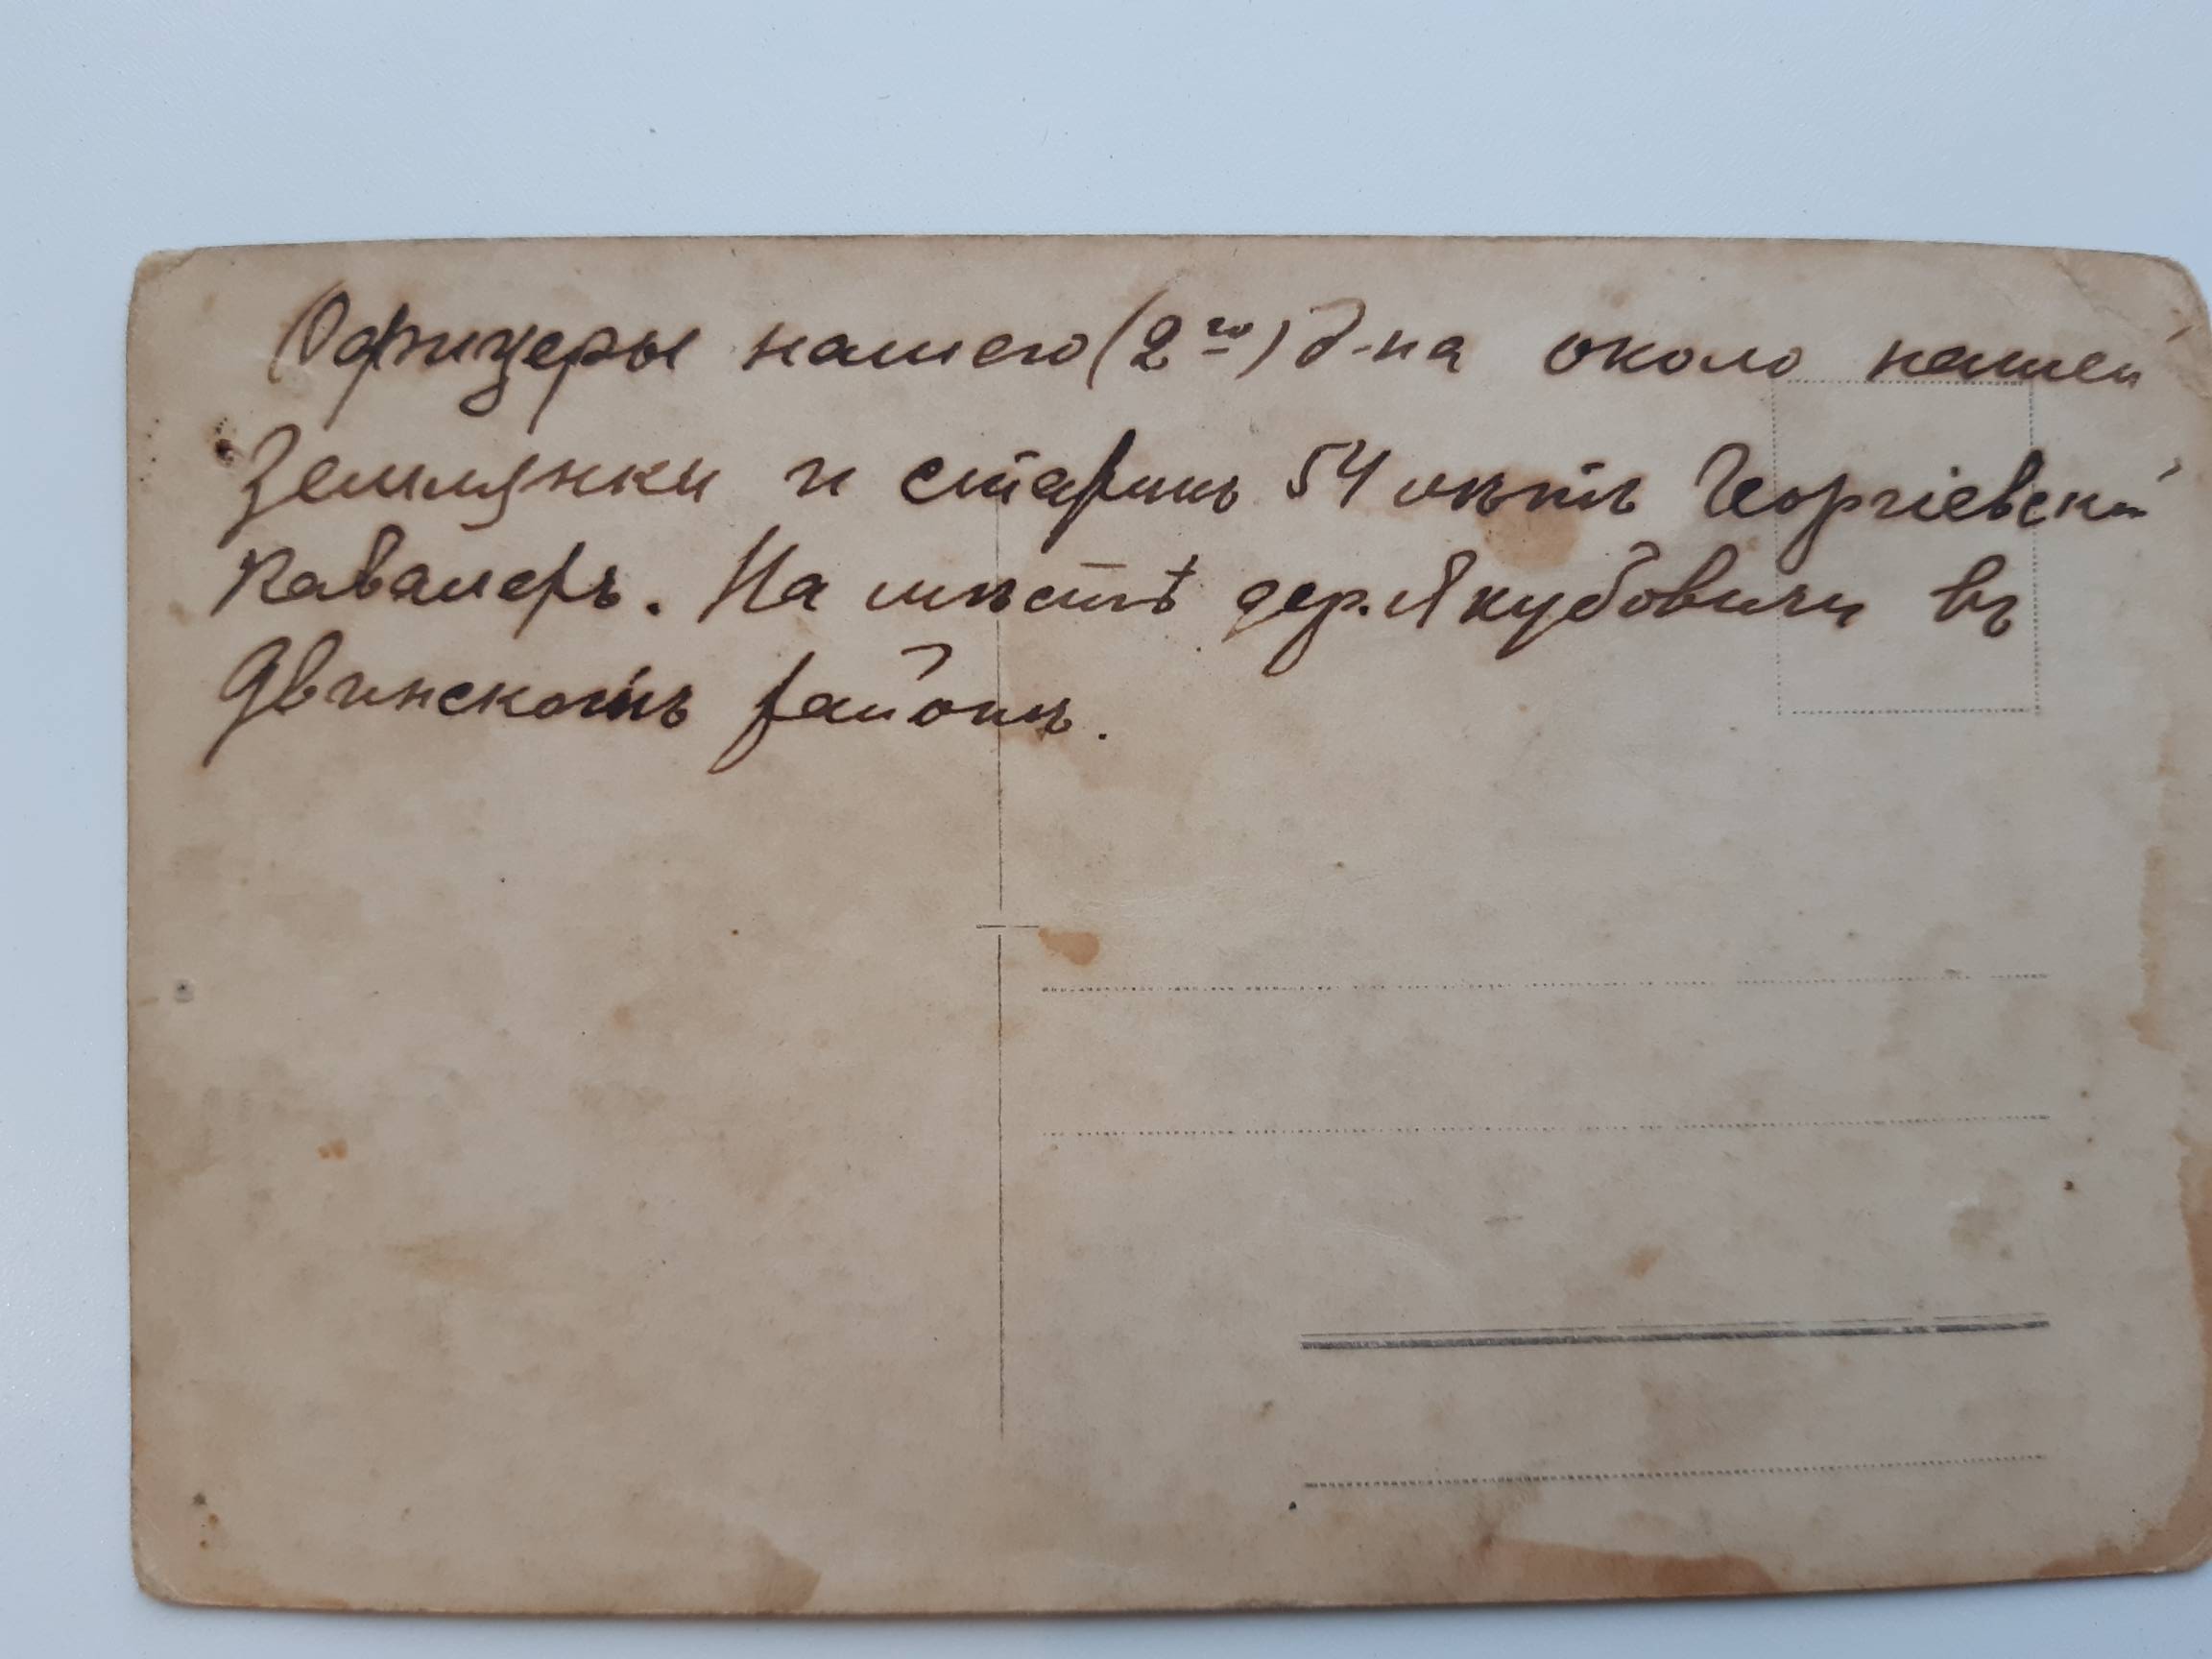 Офицеры нашего (2го) д-на около нашей
землянки и старик 54 лѣтъ Георгіевскій
Кавалеръ. На мѣстѣ дер. Якубовичи въ
Двинскомъ районѣ.